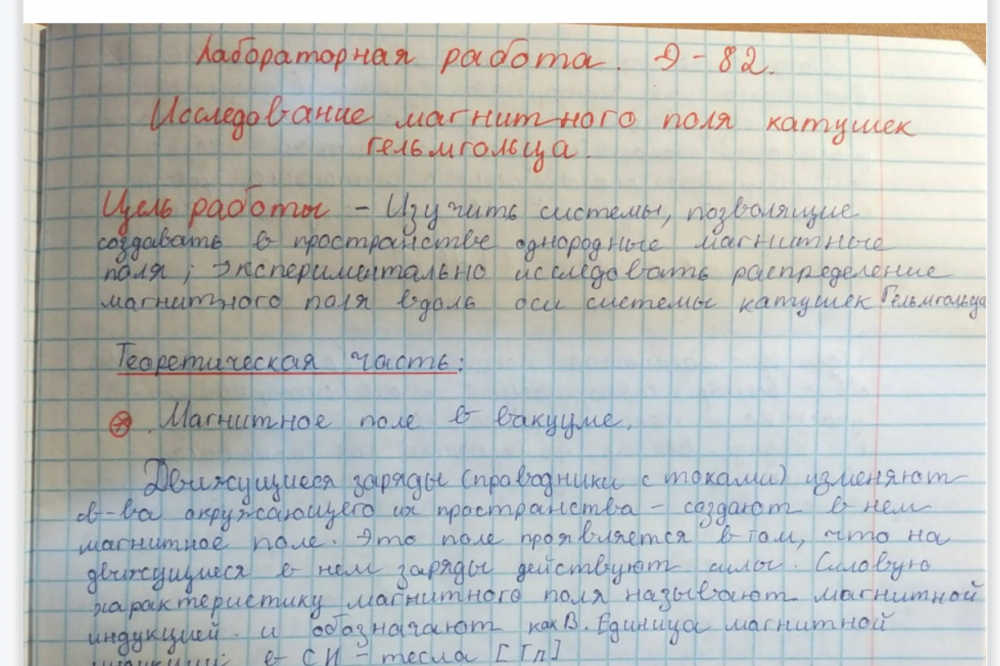 Лабораторная работа. Э-82.
Исследование магнитного поля катушек
Гельмгольца.
Цель работы - Изучить системы, позволящие
создавать в пространстве однородные магнитные
поля; экспериментально исследовать распределение
магнитного поля вдоль оси системы катушек Гельмгольца
Теоретическая часть:
Магнитное поле в вакууме.
Движущиеся заряды (проводники с токами) изменяют
св-ва окружающего их пространства - создают в нем
магнитное поле. Это поле проявляется в том, что на
движущиеся в нем заряды действуют силы. Силовую
характеристику магнитного поля называют магнитной
индукцией и обозначают как B. Единица магнитной
индукции в СИ - тесла [Тл]